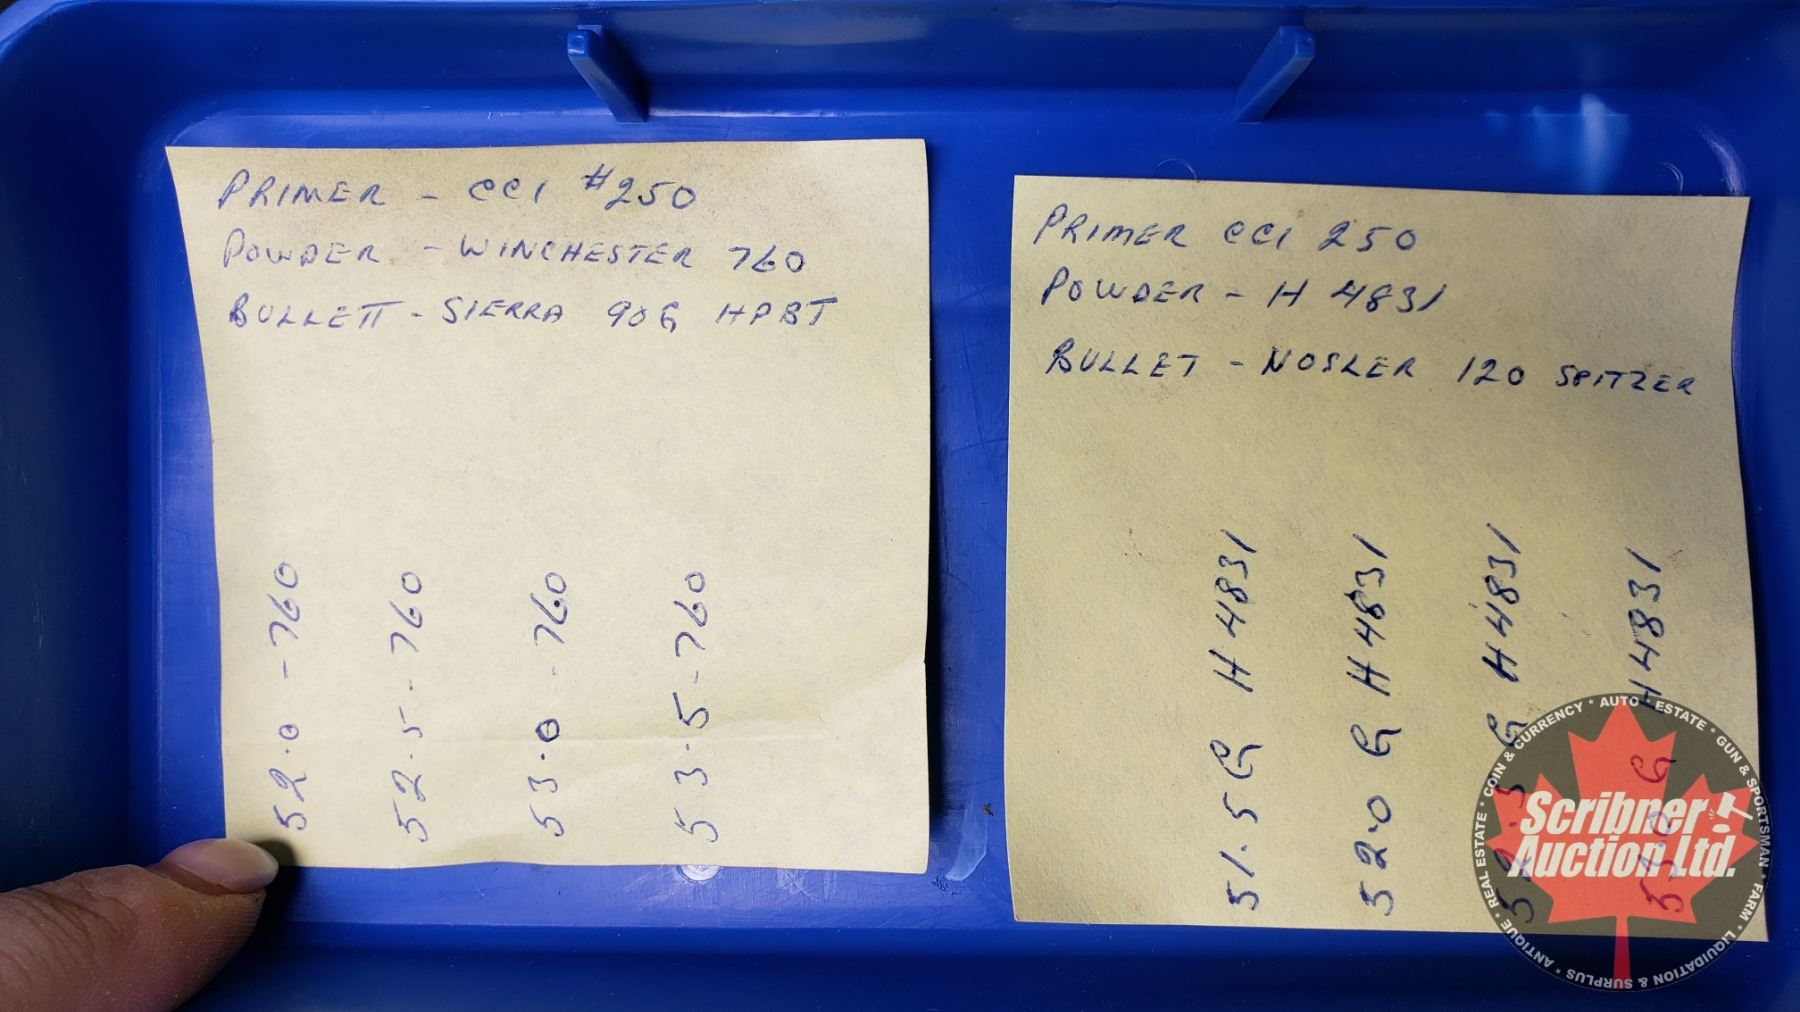 PRIMER - CCI #250
POWDER - WINCHESTER 760
BULLETT - SIERRA 90G HPBT
52.0 - 760
52.5 - 760
53.0 - 760
53.5 - 760
PRIMER CCI 250
POWDER - H 4831
BULLET - NOSLER 120 SPITZER
51.5 G H 4831
52.0 G H 4831
52.5 G H 4831
53.0 G H 4831
Scribner
Auction Ltd.
REAL ESTATE * COIN & CURRENCY * AUTO * ESTATE * GUN & SPORTSMAN * FARM * LIQUIDATION & SURPLUS * ANTIQUE *